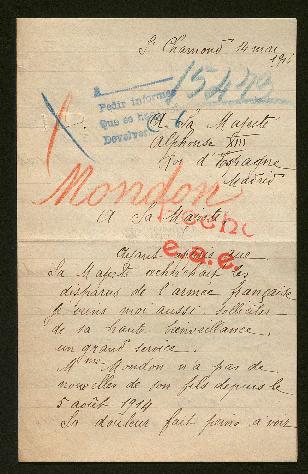 St Chamond 14 mai
191
A
15473
Pedir informes
Que se ha
Devolver
6
A Sa Majesté
Alphonse XIII
Roi d'Espagne
Madrid
Mondon
A Sa Majesté
Hecho
e.a.e.
que
Sa Majesté recherchait les
disparus de l'armée française
je viens moi aussi solliciter
de sa haute bienveillance
un grand service.
Mme Mondon n'a pas de
nouvelles de son fils depuis le
5 août 1914
Sa douleur fait peine à voir